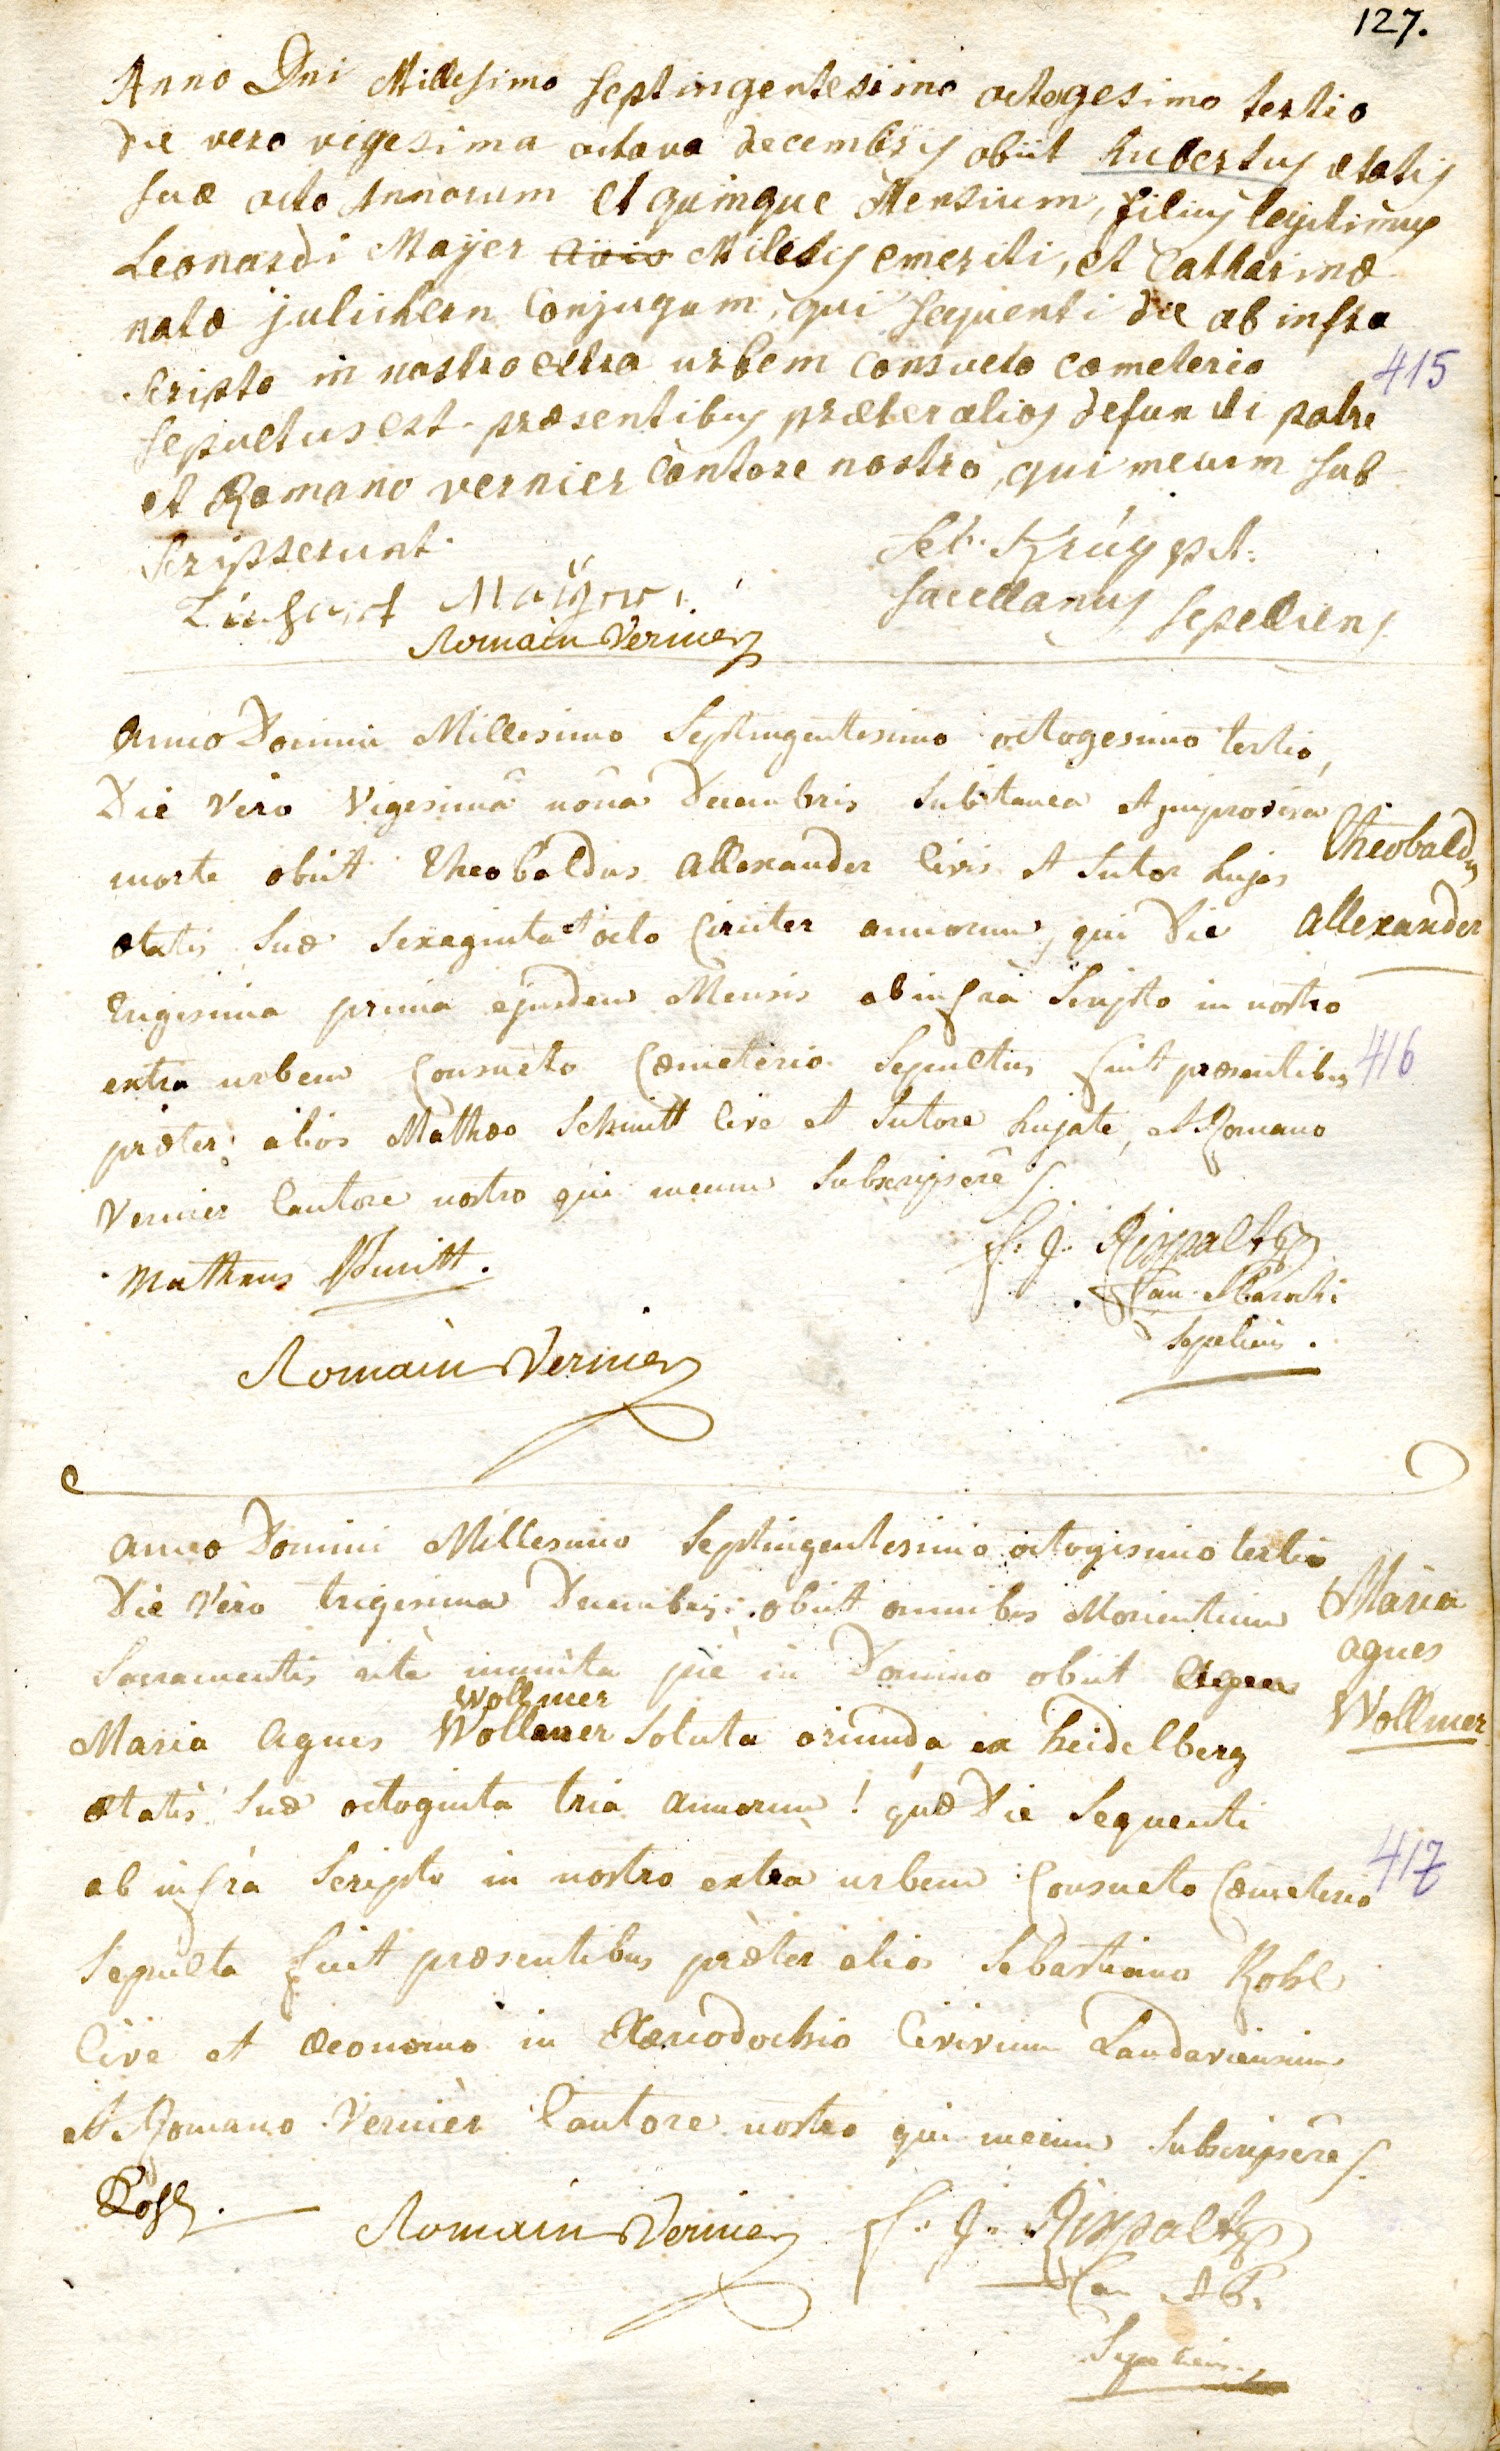 127.
Anno Dni Millesimo septingentesimo octogesimo tertio
die vero vigesima octava decembris obiit hubertus ætatis
suæ octo Annorum et quinque Mensium, filius legitimus
Leonardi Mayer civis Militis emeriti, et Catharinæ
natæ julichern Conjugum, qui sequenti die ab infra
scripto in nostro extra urbem consueto cœmeterio
415
sepultus est. præsentibus præter alios defuncti patre
et Romano vernier Cantore nostro, qui mecum sub
scripserunt.
Seb. Krug pt.
Mayer
Sacellanus sepeliens
Romain Vernier
Anno Domini Millesimo Septingentesimo octogesimo tertio,
Die Vero Vigesimâ nonâ Decembris Subitanea et improvisa
morte obiit Theobaldus Allexander Civis et Sutor hujas
Theobaldus
ætatis suæ sexaginta et octo Circiter annorum, qui Die
Allexander
trigesima prima ejusdem Mensis ab infrà Scripto in nostro
extra urbem Consueto Cœmeterio Sepultus fuit præsentibus
416
præter alios Mathæo Schmitt Cive et Sutore hujate, et Romano
Vernier Cantore nostro qui mecum Subscripsêre
Matheus Schmitt.
f. j. Rixpaltz
Can. et Parochi
sepeliens.
Romain Vernier
Anno Domini Millesimo Septingentesimo octogesimo tertio
Die Vero trigesima Decembris obiit omnibus Morientium
Maria
Sacramentis ritè munita piè in Domino obiit Agnes
agnes
Wollmer
Maria Agnes Wollmer Soluta oriunda ex heidelberg
Wollmer
ætatis suæ octoginta tria annorum! quæ Die Sequenti
ab infrà Scripto in nostro extra urbem Consueto Cœmeterio
417
Sepulta fuit præsentibus præter alios Sebastiano Rohl
Cive et Œconomo in Xenodochio Civium Landaviensium
et Romano Vernièr Cantore nostro qui mecum Subscripsêre
Rohl.
Romain Vernier
f. j. Rixpaltz
Can et P.
Sepeliens.